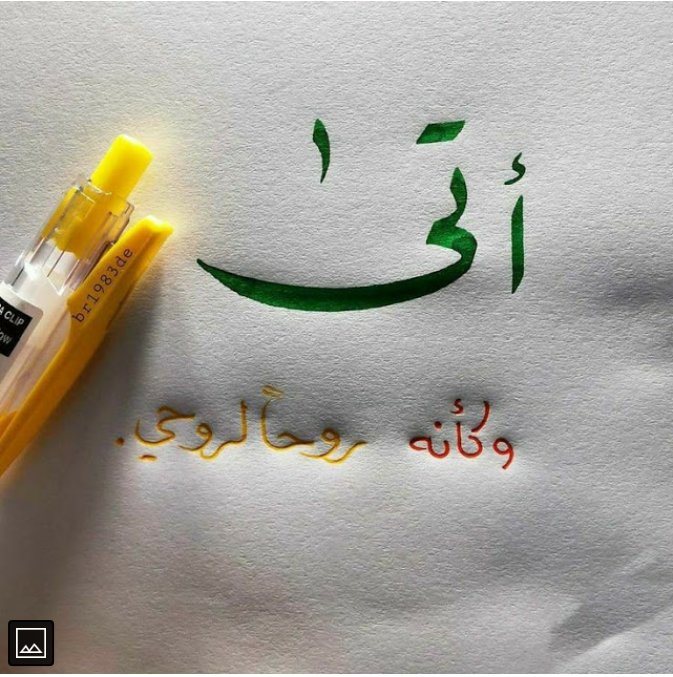 أتى
وكأنه روحاً لروحي.
br1983de
A CLIP